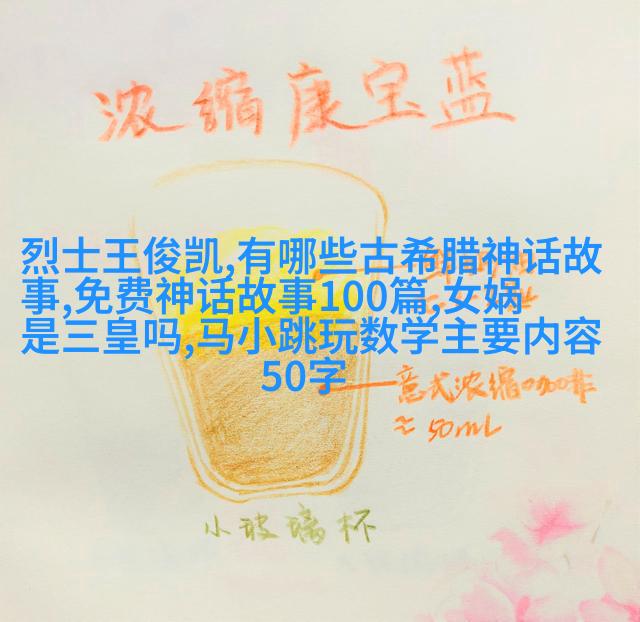 浓缩康宝蓝
烈士王俊凯,有哪些古希腊神话故
事,免费神话故事100篇,女娲
是三皇吗,马小跳玩数学主要内容
50字
意式浓缩咖啡
≈50mL
小玻璃杯